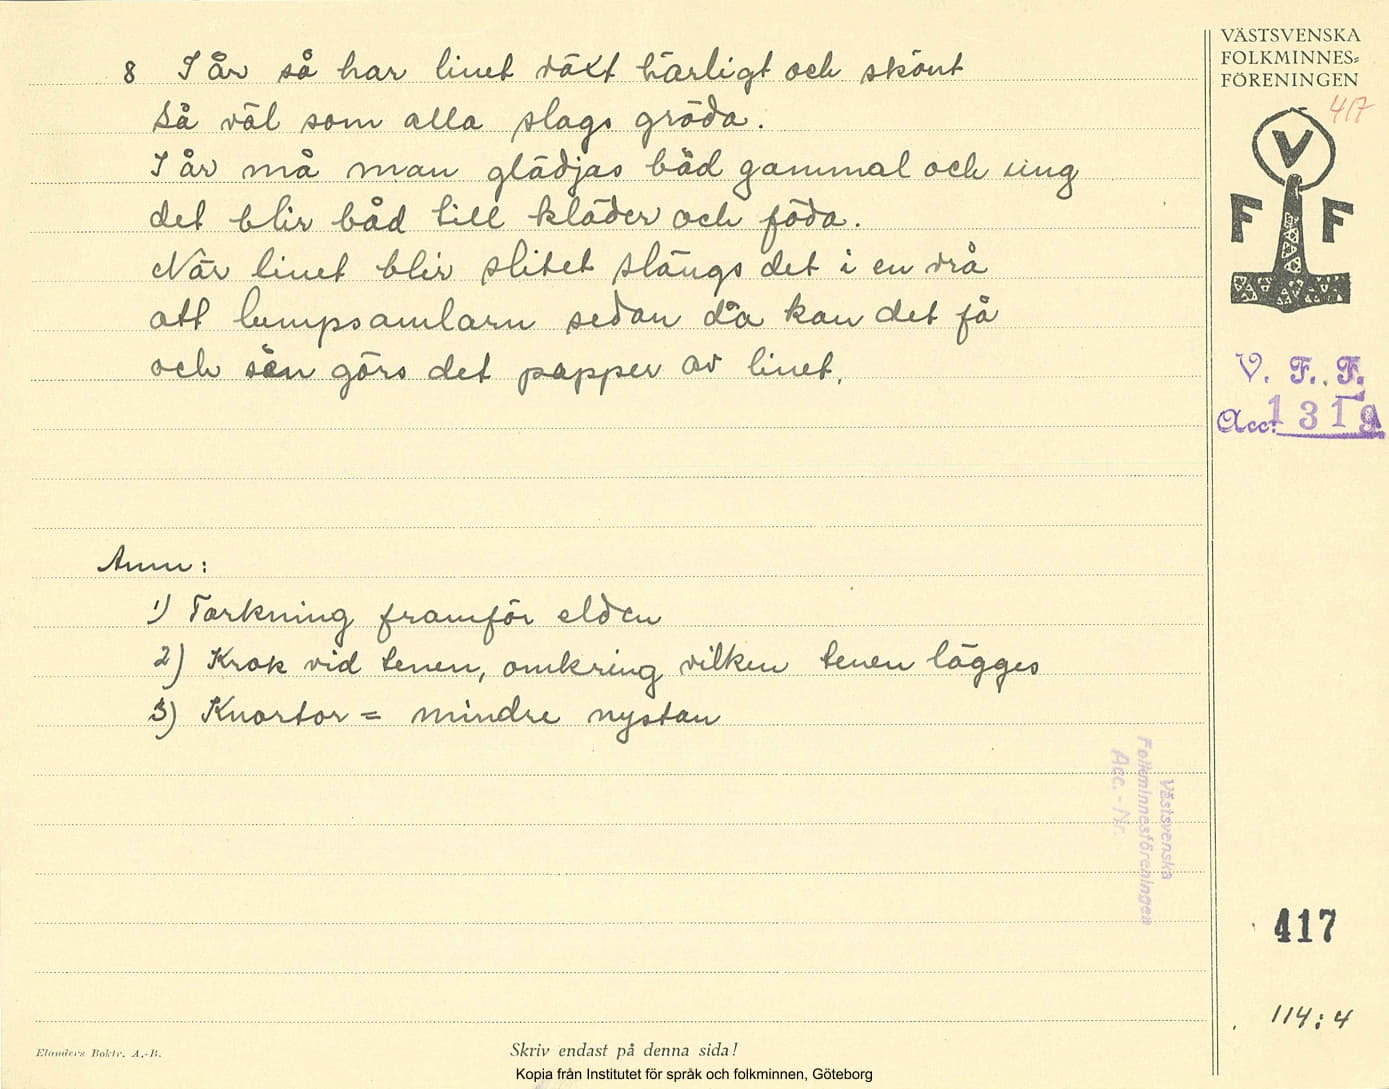 VÄSTSVENSKA
FOLKMINNES-
FÖRENINGEN
417
V
F F
V. F. F.
Acc. 1319
8 I år så har linet växt härligt och skönt
Så väl som alla slags gröda.
I år må man glädjas båd gammal och ung
det blir båd till kläder och föda.
När linet blir slitet slängs det i en vrå
att lumpsamlarn sedan då kan det få
och sen görs det papper av linet.
Anm:
1) Torkning framför elden
2) Krok vid tenen, omkring vilken tenen lägges
3) Knortor = mindre nystan
Västsvenska
Folkminnesföreningen
Acc.-Nr.
417
114:4
Elanders Boktr. A.-B.
Skriv endast på denna sida!
Kopia från Institutet för språk och folkminnen, Göteborg